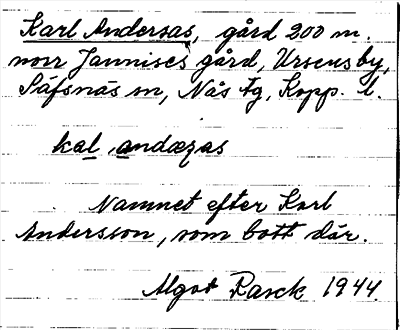 Karl Andersas, gård 200 m.
norr Jannises gård, Ursens by,
Säfsnäs sn, Nås tg, Kopp. l.
kal andæzas
Namnet efter Karl
Andersson, som bott där.
Algot Rasck 1944